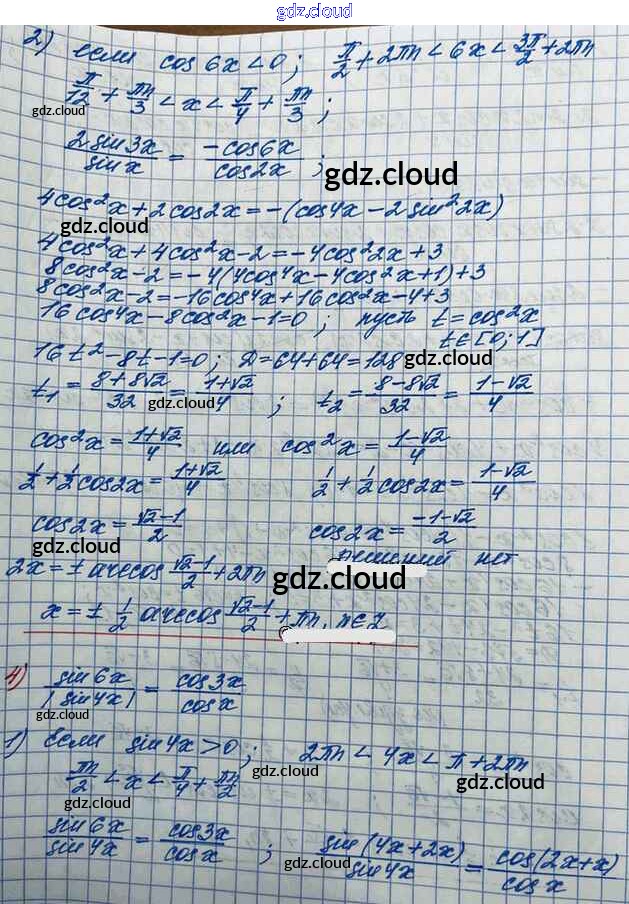 gdz.cloud
gdz.cloud
2) если cos 6x < 0 ; π/2 + 2πn < 6x < 3π/2 + 2πn
π/12 + πn/3 < x < π/4 + πn/3 ;
gdz.cloud
2 sin 3x / sin x = -cos 6x / cos 2x ;
gdz.cloud
4cos²x + 2cos2x = -(cos4x - 2sin²2x)
gdz.cloud
4cos²x + 4cos²x - 2 = -4cos²2x + 3
8cos²x - 2 = -4(4cos⁴x - 4cos²x + 1) + 3
8cos²x - 2 = -16cos⁴x + 16cos²x - 4 + 3
16cos⁴x - 8cos²x - 1 = 0 ; пусть t = cos²x
t ∈ [0; 1]
16t² - 8t - 1 = 0 ; D = 64 + 64 = 128
gdz.cloud
t₁ = (8 + 8√2)/32 = (1+√2)/4 ; t₂ = (8 - 8√2)/32 = (1-√2)/4
gdz.cloud
cos²x = (1+√2)/4 или cos²x = (1-√2)/4
1/2 + 1/2 cos2x = (1+√2)/4 1/2 + 1/2 cos2x = (1-√2)/4
cos2x = (√2-1)/2 cos2x = (-1-√2)/2
gdz.cloud
решений нет
2x = ± arccos (√2-1)/2 + 2πn
gdz.cloud
x = ± 1/2 arccos (√2-1)/2 + πn, n ∈ Z
4) sin 6x / |sin 4x| = cos 3x / cos x
gdz.cloud
1) если sin 4x > 0 ; 2πn < 4x < π + 2πn
gdz.cloud
πn/2 < x < π/4 + πn/2
gdz.cloud
sin 6x / sin 4x = cos 3x / cos x ; sin(4x + 2x) / sin 4x = cos(2x + x) / cos x
gdz.cloud
gdz.cloud
gdz.cloud